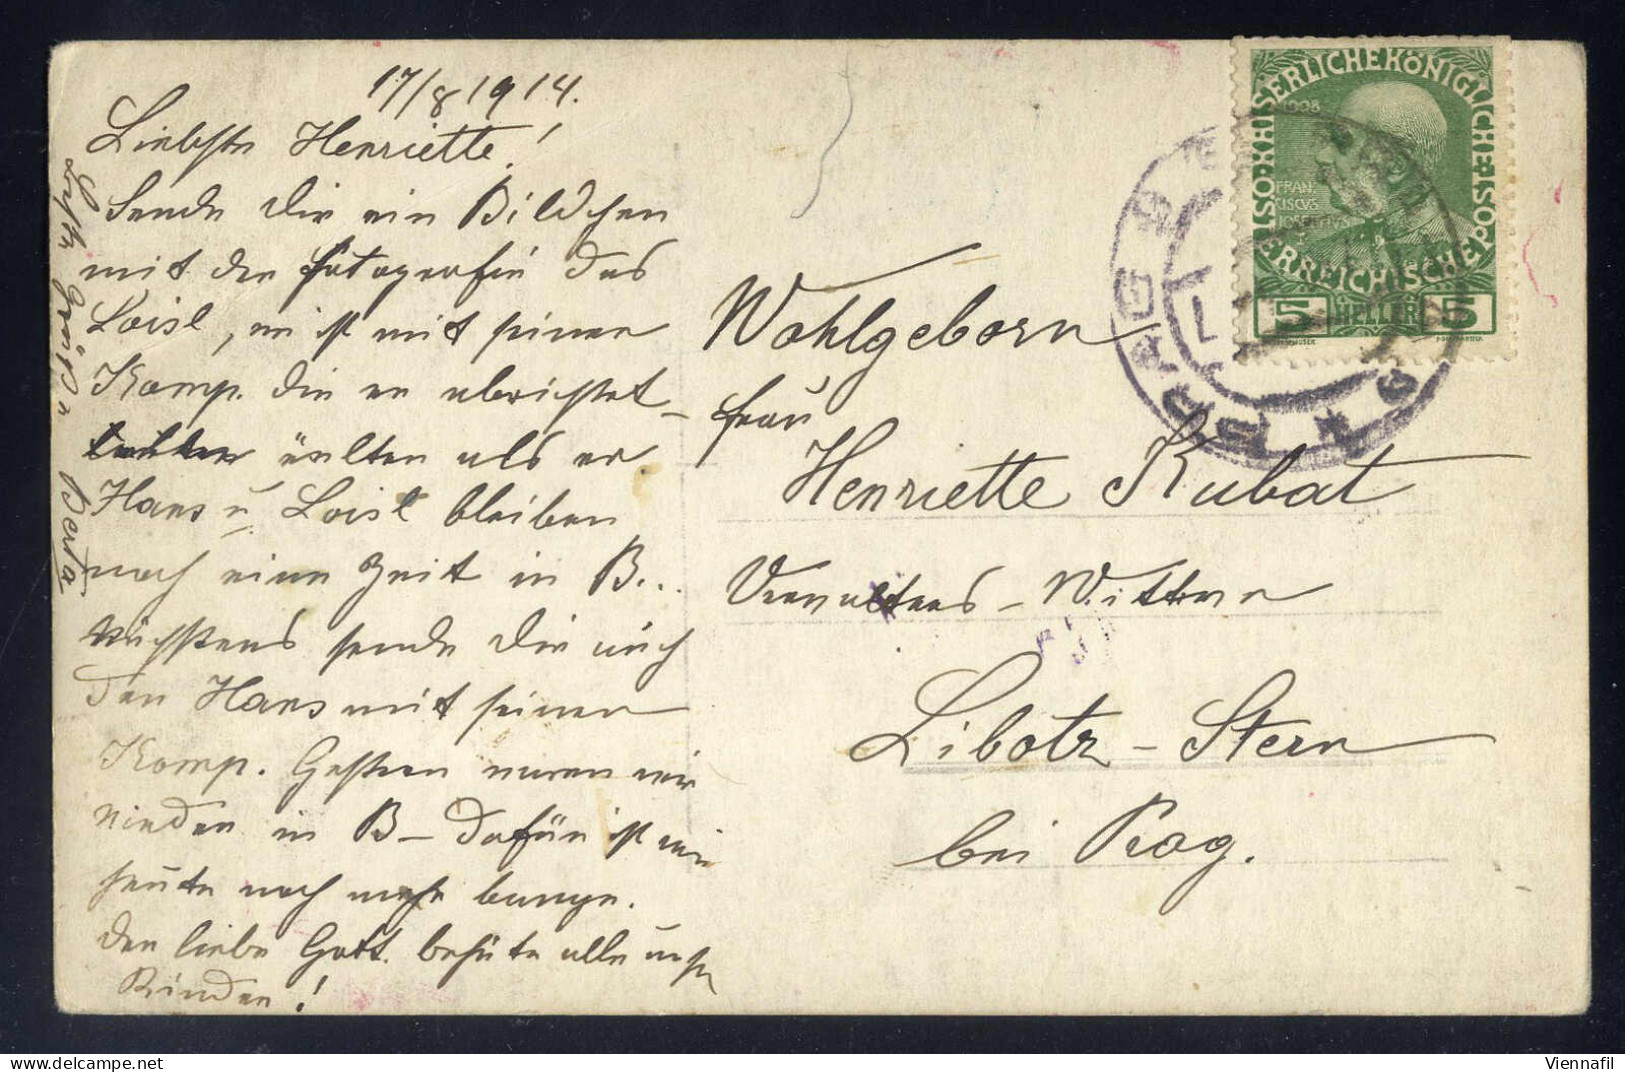 17/8 1914.
Liebste Henriette!
Sende Dir ein Bildchen
mit der Fotografie des
Loisl, er ist mit seiner
Komp. die er abrichtet
älter als er
Hans u Loisl bleiben
noch eine Zeit in B..
Nächstens sende Dir auch
den Hans mit seiner
Komp. Gestern waren wir
wieder in B – Dafür ist mir
heute noch mehr bange.
Der liebe Gott behüte alle unsre
Kinder!
Grüße Berta
Wohlgeborn
Frau
Henriette Kubat
Verwalters-Witwe
Libotz-Stern
bei Prag.
KAISERLICHE KÖNIGLICHE ÖSTERREICHISCHE POST
1908
FRAN
CISCVS
IOSEPHVS
5 HELLER 5
Viennafil